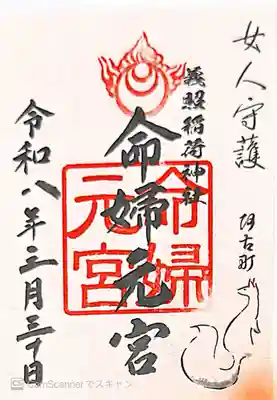 女人守護
阿古町
義照稲荷神社
命婦元宮
命婦
元宮
令和八年三月三十日
CS CamScannerでスキャン